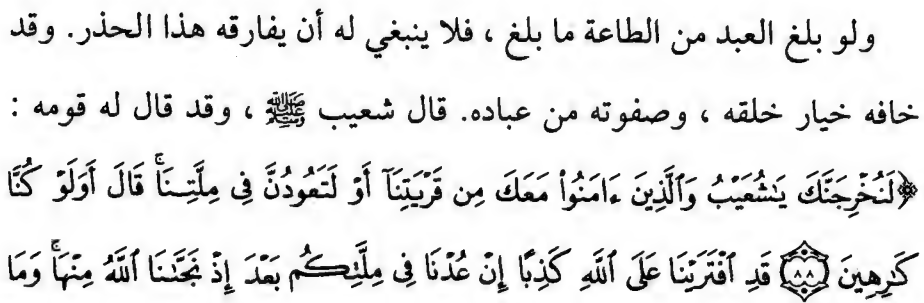 ولو بلغ العبد من الطاعة ما بلغ ، فلا ينبغي له أن يفارقه هذا الحذر. وقد
خافه خيار خلقه ، وصفوته من عباده. قال شعيب ﷺ ، وقد قال له قومه :
﴿لَنُخْرِجَنَّكَ يَٰشُعَيْبُ وَٱلَّذِينَ ءَامَنُوا۟ مَعَكَ مِن قَرْيَتِنَآ أَوْ لَتَعُودُنَّ فِى مِلَّتِنَاۚ قَالَ أَوَلَوْ كُنَّا
كَٰرِهِينَ ۝٨٨ قَدِ ٱفْتَرَيْنَا عَلَى ٱللَّهِ كَذِبًا إِنْ عُدْنَا فِى مِلَّتِكُم بَعْدَ إِذْ نَجَّىٰنَا ٱللَّهُ مِنْهَاۚ وَمَا